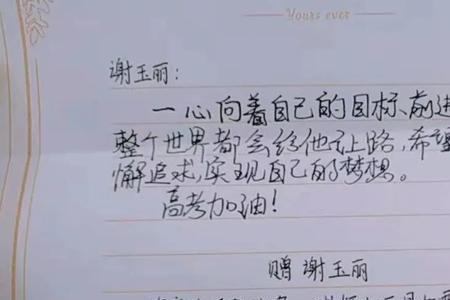 Yours ever
谢玉丽:
一心向着自己的目标前进
整个世界都会给他让路,希望
懈追求,实现自己的梦想。
高考加油!
赠 谢玉丽